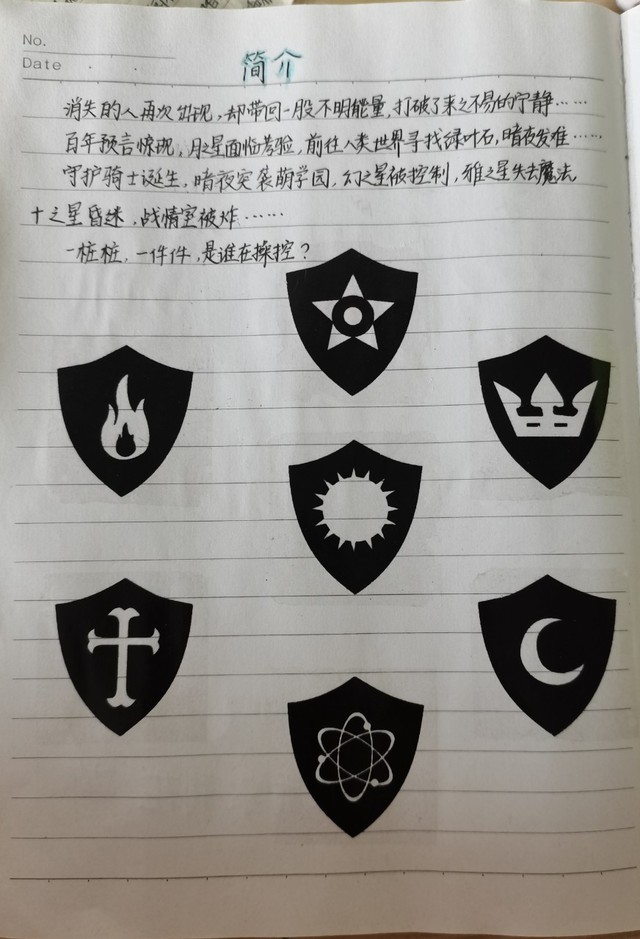 No.
Date
简介
消失的人再次出现，却带回一股不明能量，打破了来之不易的宁静……
百年预言惊现，月之星面临考验，前往人类世界寻找绿叶石，暗夜发难……
守护骑士诞生，暗夜突袭萌学园，幻之星被控制，雅之星失去魔法，
十之星昏迷，战情室被炸……
一桩桩，一件件，是谁在操控？